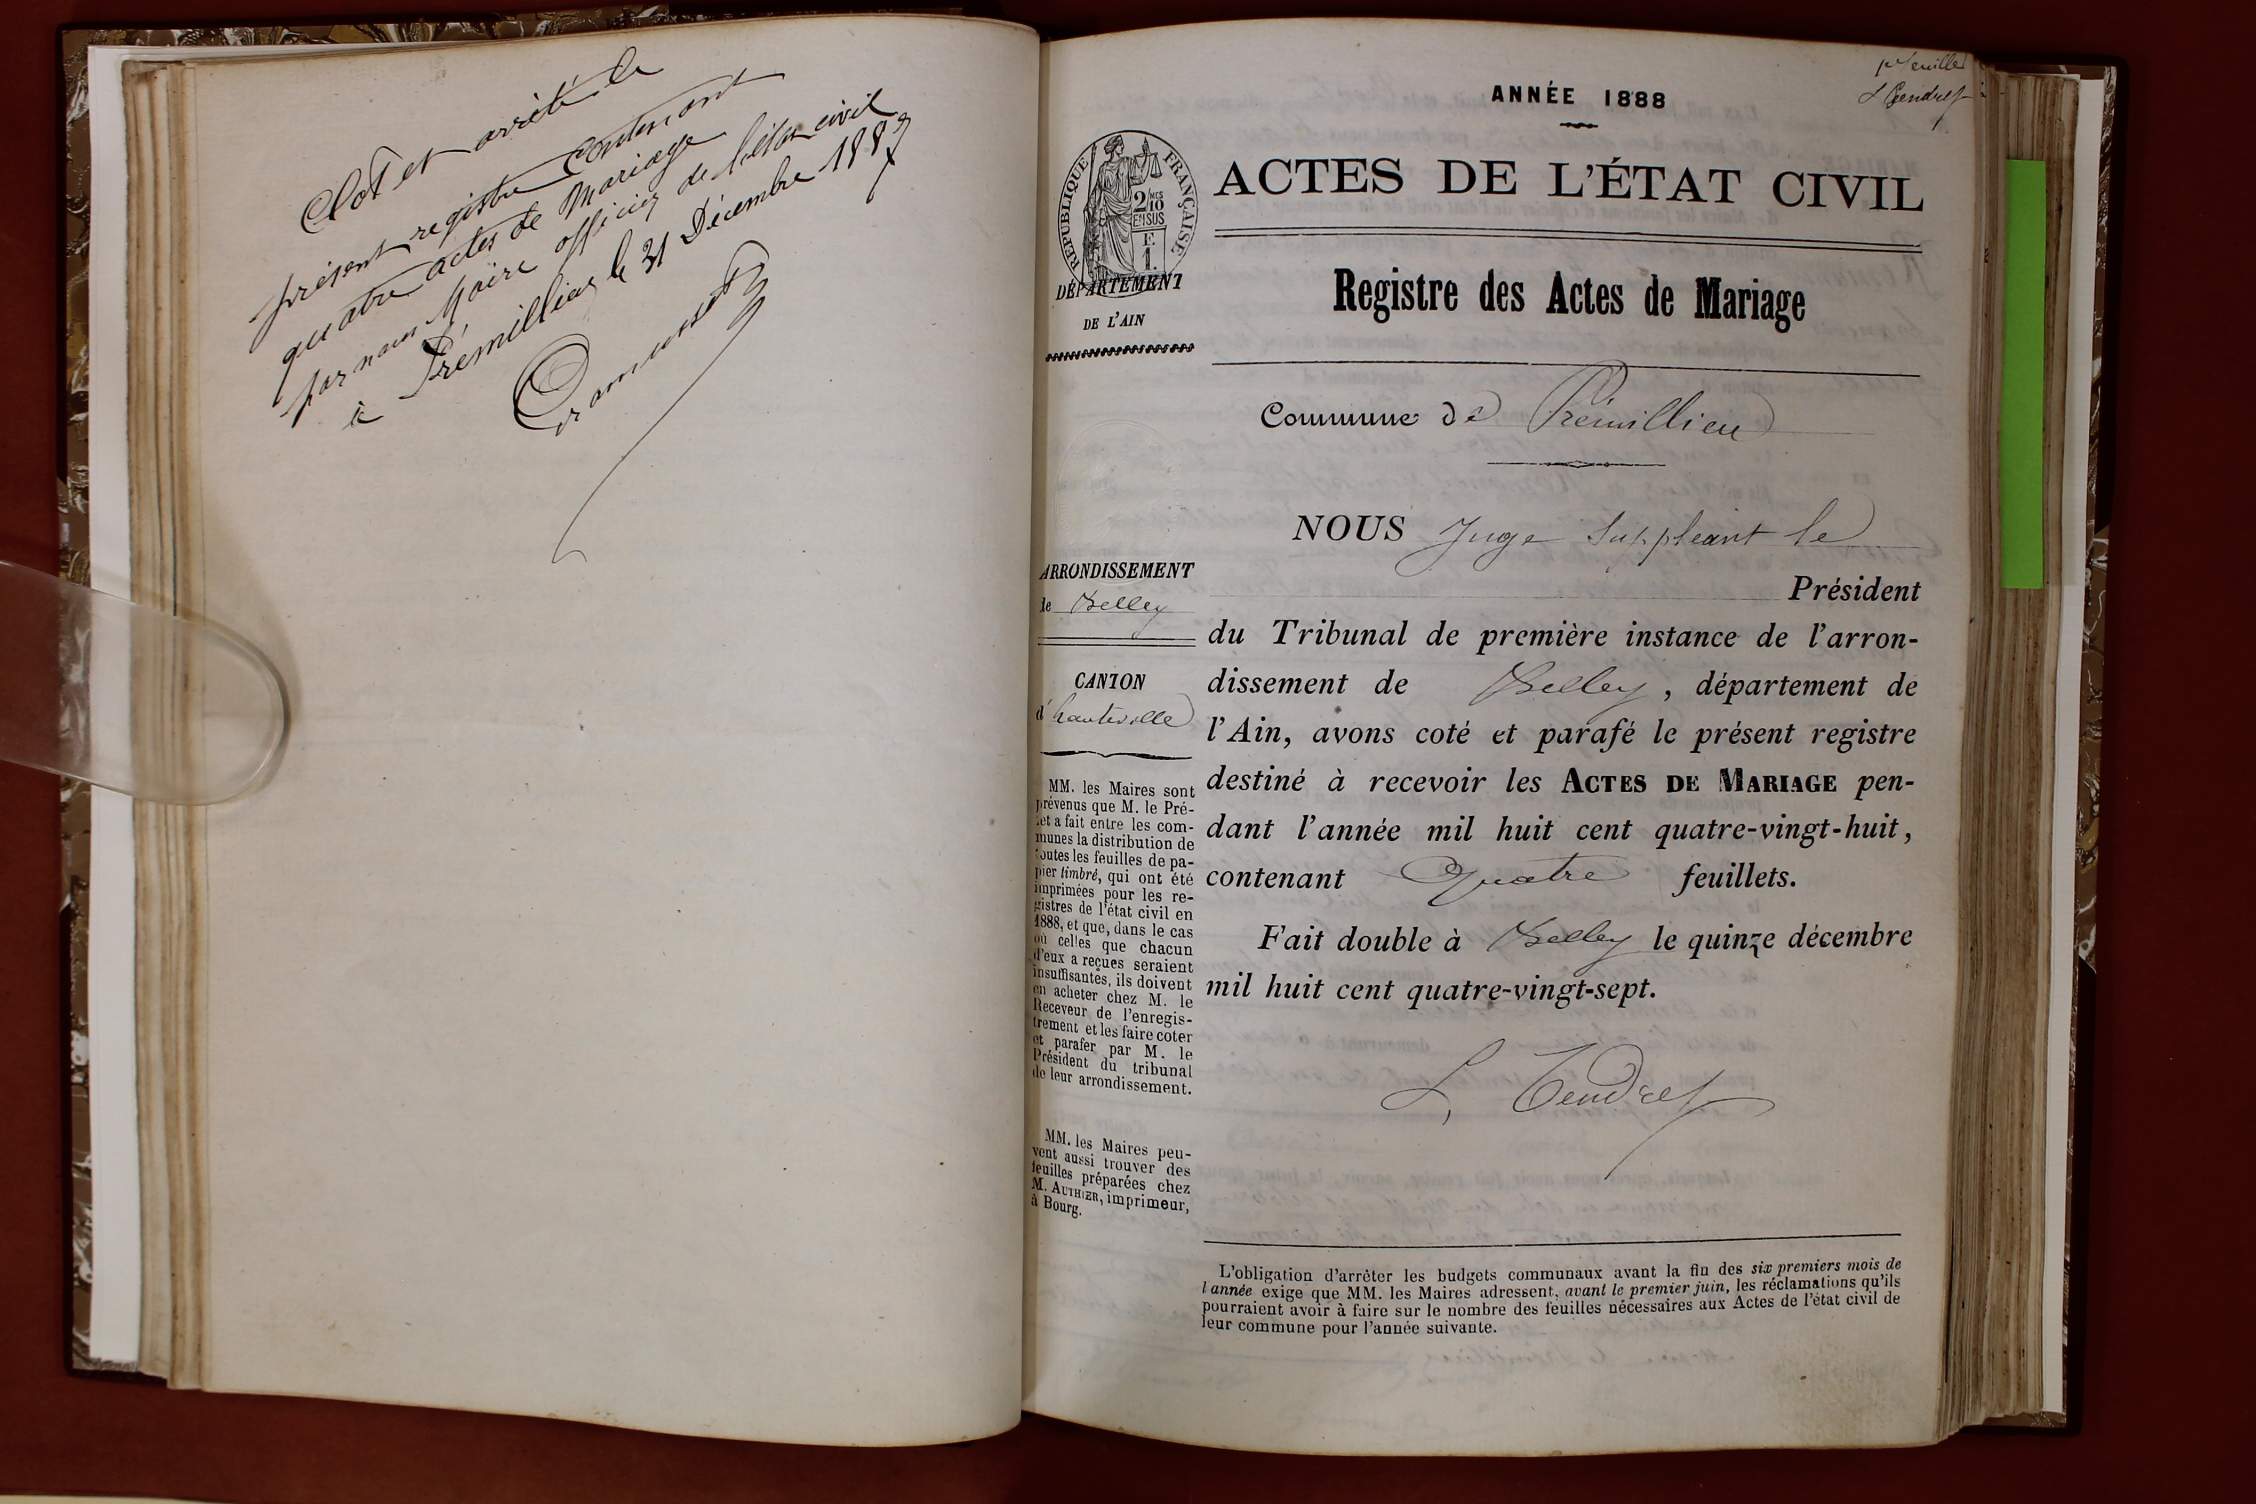 Clos et arrêté le
présent registre contenant
quatre actes de Mariage
par nous Maire officier de l'état civil
à Prémillieu le 31 Décembre 1887
1er feuillet
L Tendret
ANNÉE 1888
RÉPUBLIQUE FRANÇAISE
2/10 EN SUS
E
1.
ACTES DE L'ÉTAT CIVIL
DÉPARTEMENT
DE L'AIN
Registre des Actes de Mariage
Commune de Prémillieu
NOUS Juge Suppléant le
Président
du Tribunal de première instance de l'arron-
dissement de Belley, département de
l'Ain, avons coté et parafé le présent registre
destiné à recevoir les ACTES DE MARIAGE pen-
dant l'année mil huit cent quatre-vingt-huit,
contenant Quatre feuillets.
Fait double à Belley le quinze décembre
mil huit cent quatre-vingt-sept.
L. Tendret
ARRONDISSEMENT
de Belley
CANTON
d'hauteville
MM. les Maires sont
prévenus que M. le Pré-
fet a fait entre les com-
munes la distribution de
toutes les feuilles de pa-
pier timbré, qui ont été
imprimées pour les re-
gistres de l'état civil en
1888, et que, dans le cas
où celles que chacun
d'eux a reçues seraient
insuffisantes, ils doivent
en acheter chez M. le
Receveur de l'enregis-
trement et les faire coter
et parafer par M. le
Président du tribunal
de leur arrondissement.
MM. les Maires peu-
vent aussi trouver des
feuilles préparées chez
M. AUTHIER, imprimeur,
à Bourg.
L'obligation d'arrêter les budgets communaux avant la fin des six premiers mois de
l'année exige que MM. les Maires adressent, avant le premier juin, les réclamations qu'ils
pourraient avoir à faire sur le nombre des feuilles nécessaires aux Actes de l'état civil de
leur commune pour l'année suivante.